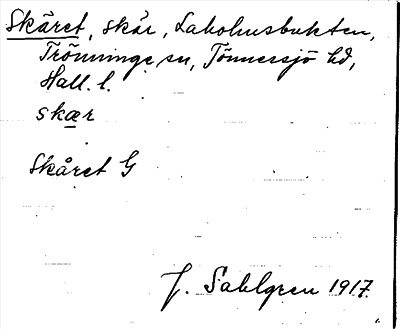 Skäret, skär, Laholmsbukten,
Trönninge sn, Tönnersjö hd,
Hall. l.
skær
Skåret G
J. Sahlgren 1917.